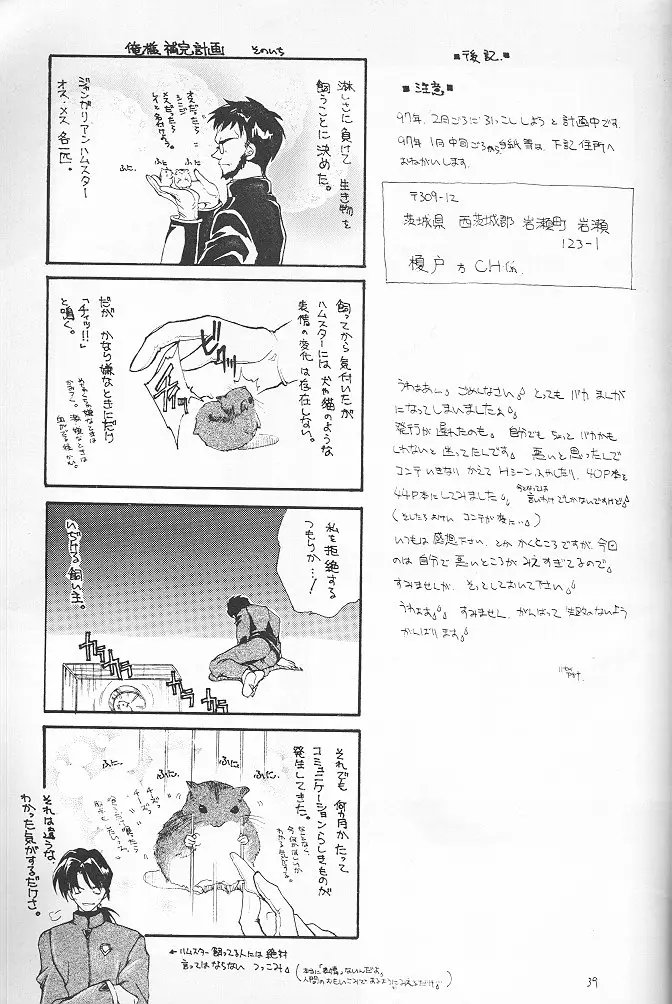 俺様補完計画 そのいち
淋しさに負けて 生き物を
飼うことに決めた。
オスだったら
シンジ
メスだったら
レイと名付けよう。
ふに ふに ふに
ジャンガリアンハムスター
オス・メス 各一匹。
飼ってから 気付いたが
ハムスターには 犬や猫のような
表情の変化は 存在しない。
だが かなり嫌なときにだけ
「チィッ!!」
と鳴く。
私を拒絶する
つもりか…!
いじける飼い主。
ガラ ガラ ガラ
それでも 何カ月かたって
コミュニケーションらしきものが
発生してきた。
ふに。 ふに。 ふに。 ふに。
それは違うな、
わかった気がするだけさ。
←ハムスター飼ってる人には絶対
言ってはならない つっこみ。
(本当に「表情」ないんだよ。
人間のおもいこみで あるようにみえるだけ。)
■後記.■
■注意■
97年、2月ごろに引っこししようと計画中です.
97年1月中旬ごろから手紙等は、下記住所へ
おねがいします。
〒309-12
茨城県 西茨城郡 岩瀬町 岩瀬
123-1
榎戸 方 CHIN.
うわぁあー。ごめんなさい。とってもバカまんが
になってしまいましたよ。
発行が遅れたのも。自分でも ちょっとバカかも
しれないと迷ってたんです。 悪いと思ったんで
コンテ いきなり かえて Hシーン入れたり、40P本を
44P本にしてみました。今となっては言いわけでしかないですけど。
(そしたらよけい コンテが変に…。)
いつもは感想下さい、とか かくところですが、今回
のは 自分で悪いところが みえすぎてるので。
すみませんが、そっとしておいて下さい。
うわぁぁ。。すみません、がんばって 失敗のないよう
がんばります。
39